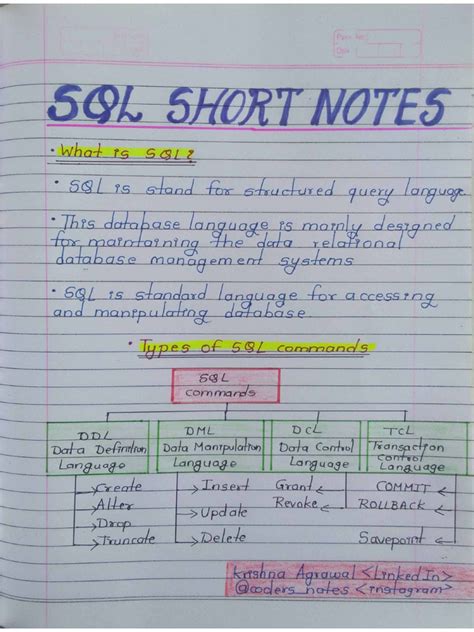 Page No:
Date :
SQL SHORT NOTES
• What is SQL?
• SQL is stand for structured query language.
• This database language is mainly designed
for maintaining the data relational
database management systems
• SQL is standard language for accessing
and manipulating database.
• Types of SQL commands
SQL
commands
DDL
Data Definition
Language
DML
Data Manipulation
Language
DCL
Data Control
Language
TCL
Transaction
control
Language
Create
Alter
Drop
Truncate
Insert
Update
Delete
Grant
Revoke
COMMIT
ROLLBACK
Savepoint
Krishna Agrawal <LinkedIn>
@coders_notes <instagram>